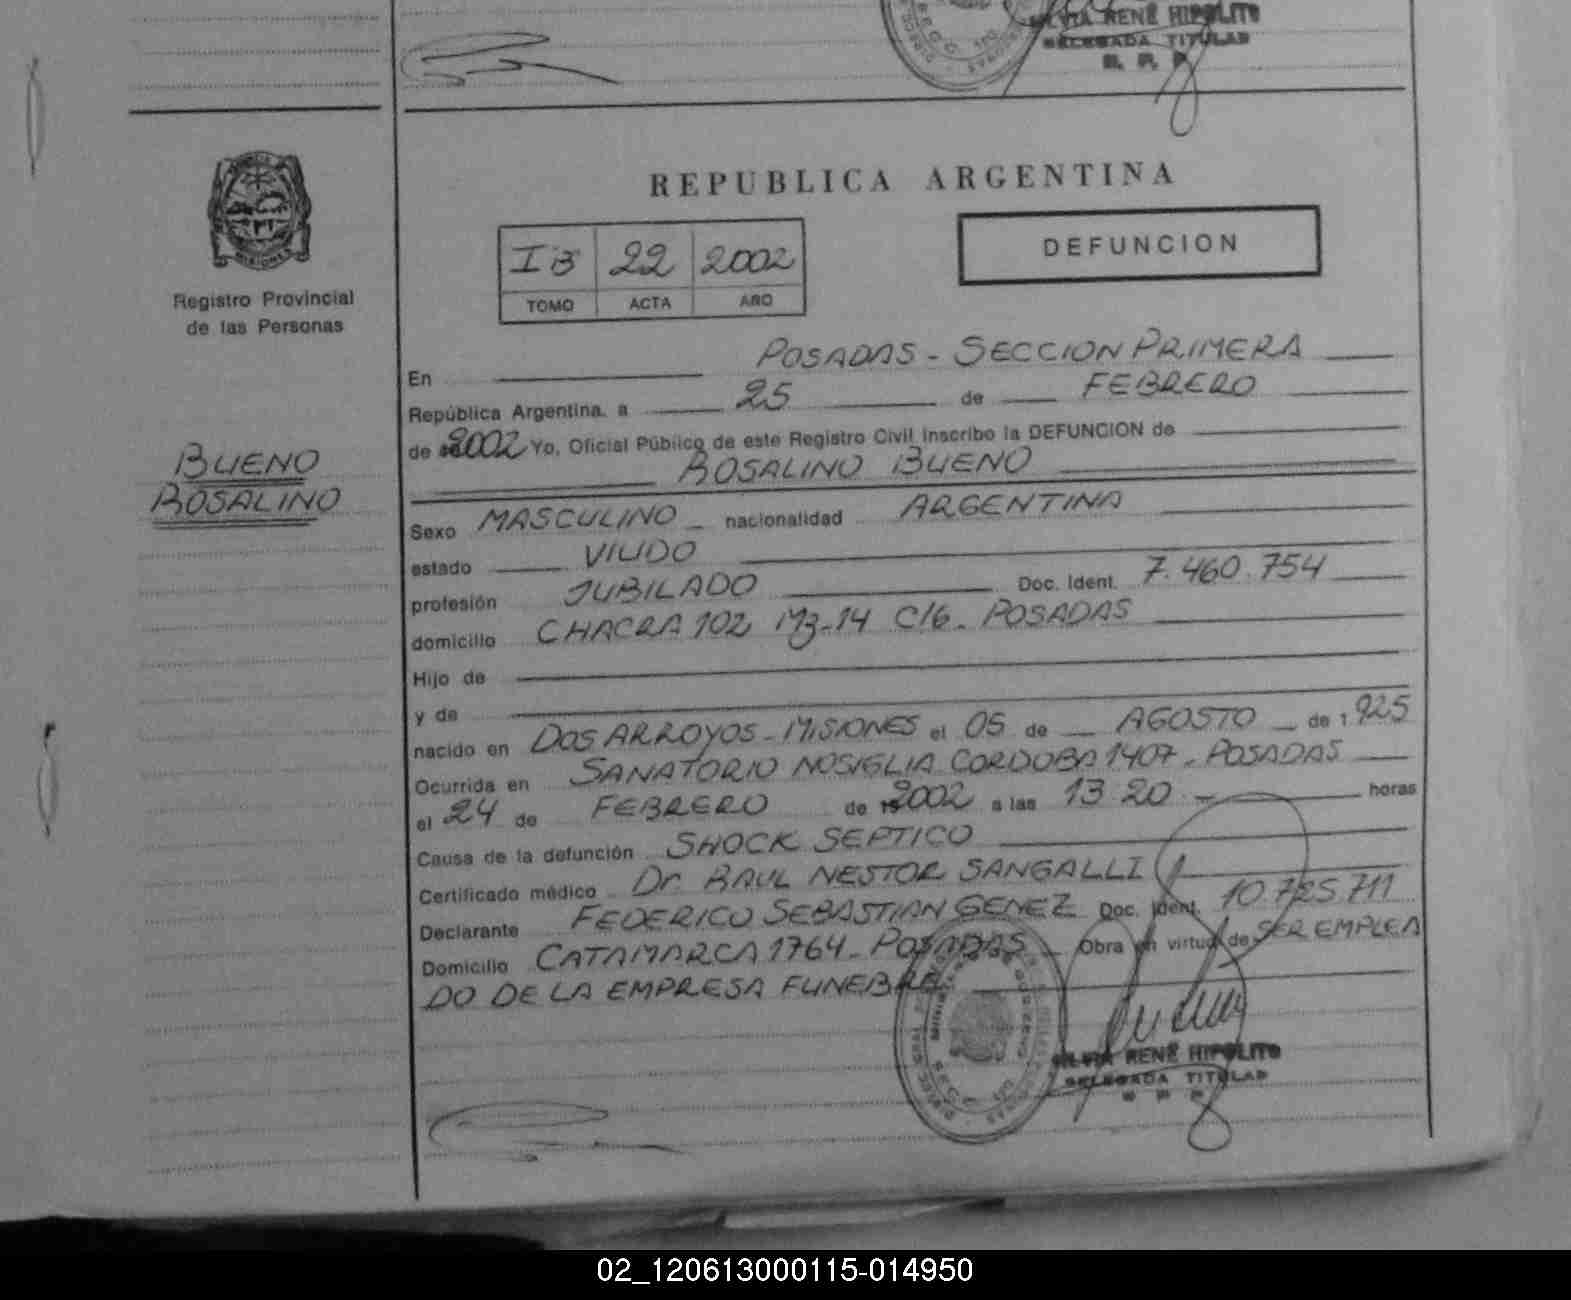 SILVIA RENÉ HIPOLITO
DELEGADA TITULAR
R. P. P.
MISIONES
Registro Provincial
de las Personas
BUENO
ROSALINO
REPUBLICA ARGENTINA
I B 22 2002
TOMO ACTA AÑO
DEFUNCION
En POSADAS - SECCION PRIMERA
República Argentina, a 25 de FEBRERO
de 2002 Yo, Oficial Público de este Registro Civil inscribo la DEFUNCION de
ROSALINO BUENO
Sexo MASCULINO nacionalidad ARGENTINA
estado VIUDO
profesión JUBILADO Doc. Ident. 7.460.754
domicilio CHACRA 102 Mz-14 C/6 - POSADAS
Hijo de
y de
nacido en DOS ARROYOS - MISIONES el 05 de AGOSTO de 1.925
Ocurrida en SANATORIO NOSIGLIA CORDOBA 1407 - POSADAS
el 24 de FEBRERO de 2002 a las 13 20 horas
Causa de la defunción SHOCK SEPTICO
Certificado médico Dr. RAUL NESTOR SANGALLI
Declarante FEDERICO SEBASTIAN GENEZ Doc. Ident. 10.725.711
Domicilio CATAMARCA 1764 - POSADAS Obra en virtud de SER EMPLEA
DO DE LA EMPRESA FUNEBRE
SILVIA RENÉ HIPOLITO
DELEGADA TITULAR
R. P. P.
02_120613000115-014950